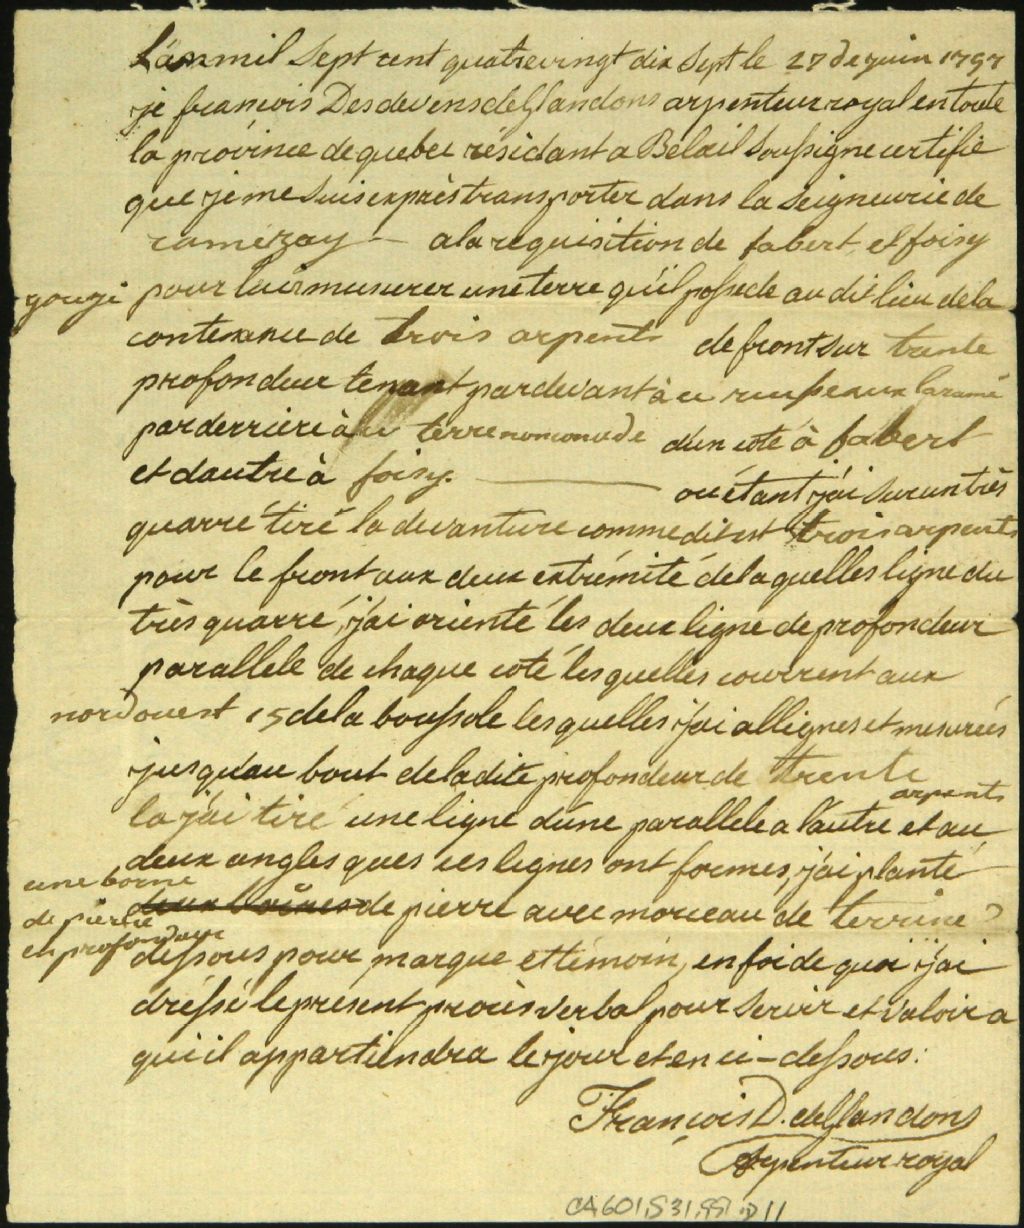 L'an mil Sept cent quatrevingt dix Sept le 27 de juin 1797
je françois Desdevens de Glandons arpenteur royal en toute
la province de quebec résidant a Belœil Soussigne certifie
que je me Suis exprès transporter dans la Seigneurie de
ramezay — a la requisition de fabert et foisy
gougé pour luir musurer une terre qu'il possede au dit lieu de la
contenance de trois arpents de front sur trente
profondeur tenant par devant à ce ruisseaux laramé
par derriere à terre nomconcude d'un coté à fabert
et d'autre à foisy. ou étant j'ai sur un très
quarré tiré la devanture comme dit est trois arpents
pour le front aux deux extrémité de laquelles ligne du
très quarré, j'ai orienté les deux ligne de profondeur
parallele de chaque coté lesquelles courrent aux
nord ouest 15 de la boussole lesquelles j'ai allignes et mesurées
jusqu'au bout de ladite profondeur de trente
arpents
la j'ai tiré une ligne d'une parallele a l'autre et au
deux angles ques ces lignes ont formes, j'ai planté
une borne
de pierre
en profondeur
deux bornes de pierre avec morceau de terrine
dessous pour marque et témoin, en foi de quoi j'ai
dréssé le present procès verbal pour Servir et Valoir a
qui il appartiendra le jour et en ci-dessous:
François D. de Glandons
Arpenteur royal
CA601,S31,SS1,D11